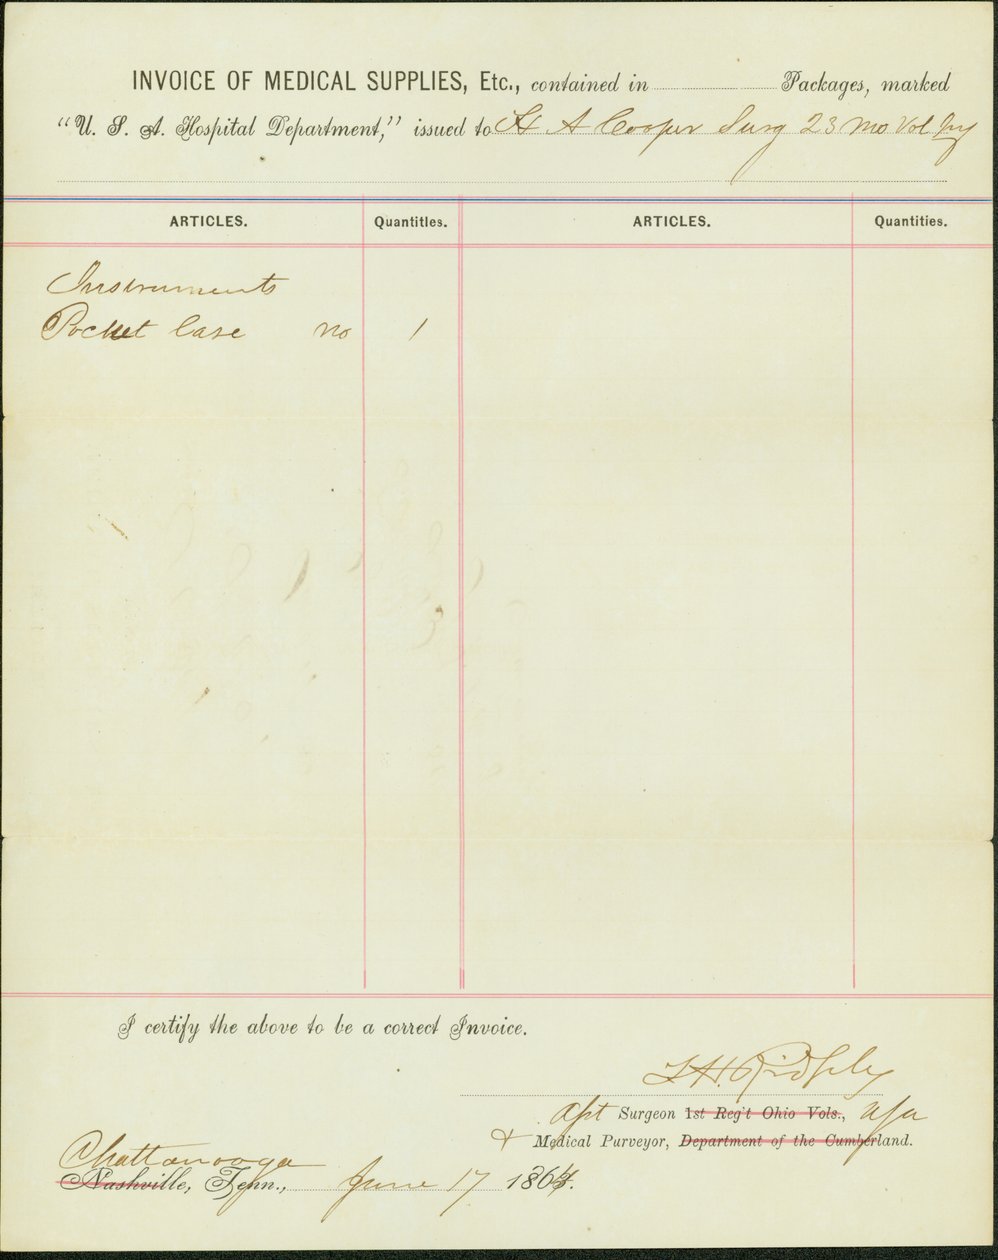 INVOICE OF MEDICAL SUPPLIES, Etc., contained in Packages, marked
"U. S. A. Hospital Department," issued to H A Cooper Surg 23 Mo Vol Inf
ARTICLES. Quantities. ARTICLES. Quantities.
Instruments
Pocket Case no 1
I certify the above to be a correct Invoice.
Asst Surgeon 1st Reg't Ohio Vols., USA
& Medical Purveyor, Department of the Cumberland.
Chattanooga
Nashville, Tenn., June 17 1864.